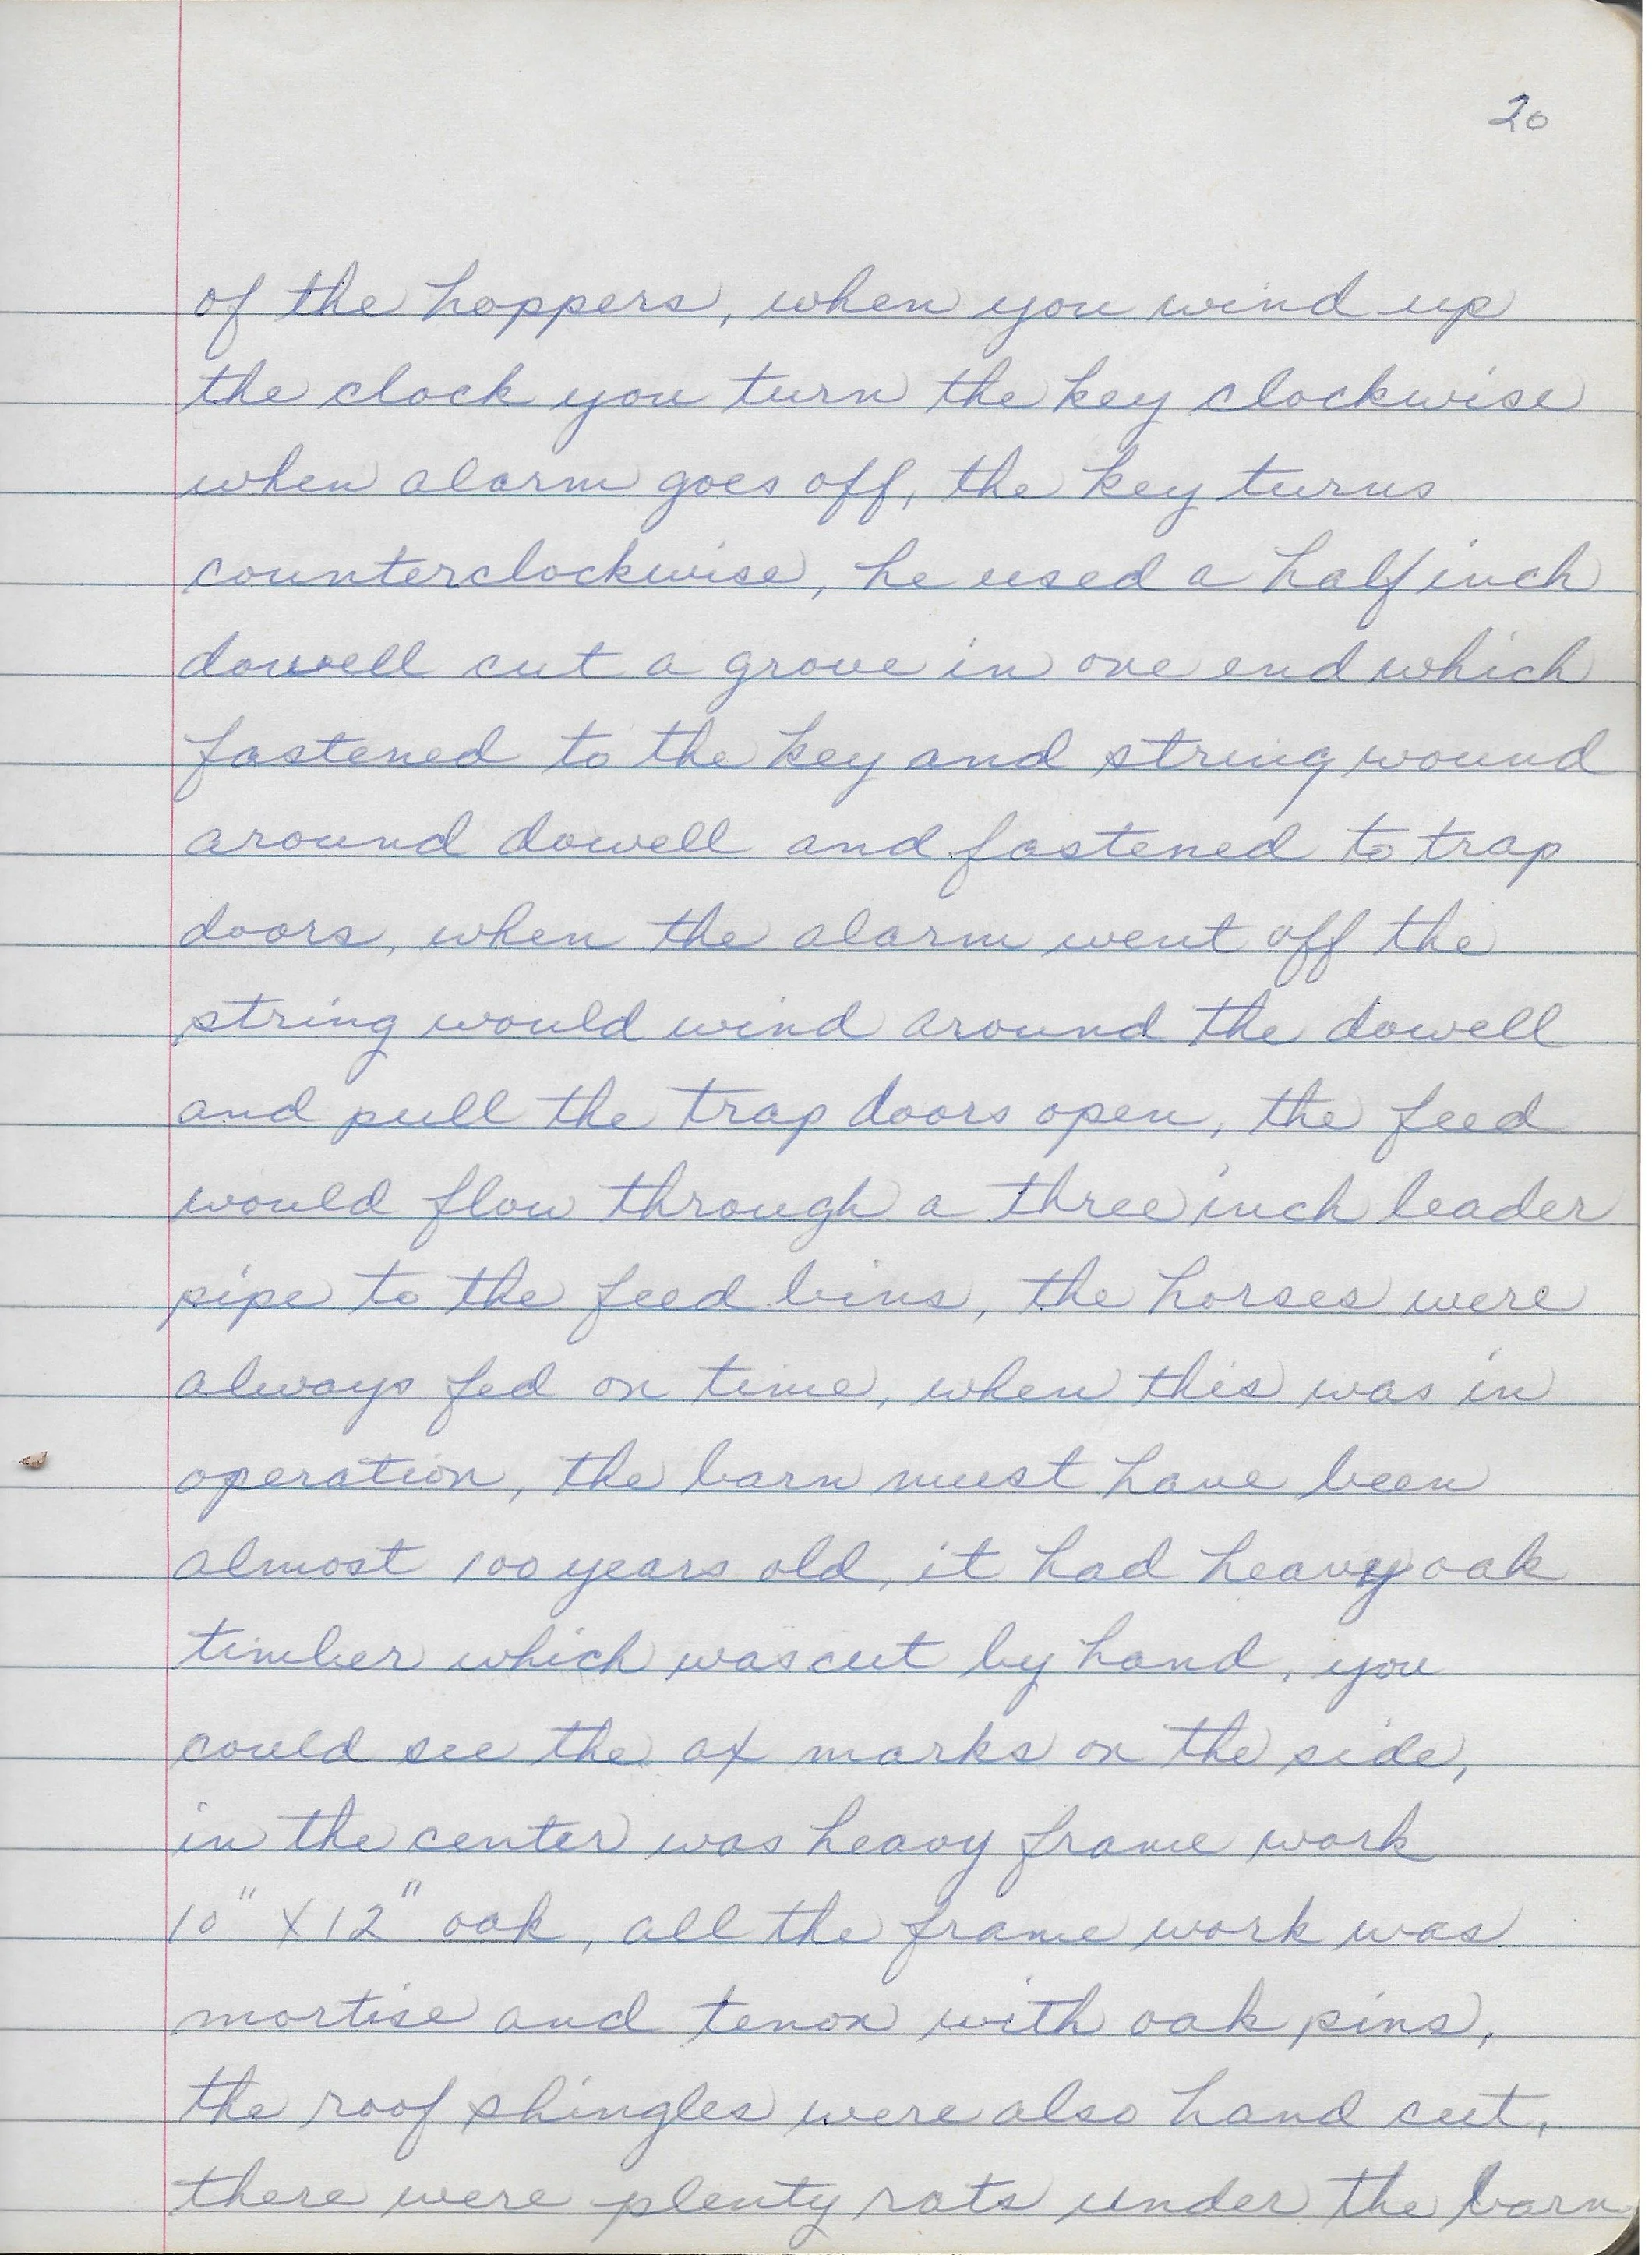 20
of the hoppers, when you wind up
the clock you turn the key clockwise
when alarm goes off, the key turns
counterclockwise, he used a half inch
dowell cut a grove in one end which
fastened to the key and string wound
around dowell and fastened to trap
doors, when the alarm went off the
string would wind around the dowell
and pull the trap doors open, the feed
would flow through a three inch leader
pipe to the feed bins, the horses were
always fed on time, when this was in
operation, the barn must have been
almost 100 years old, it had heavy oak
timber which was cut by hand, you
could see the ax marks on the side,
in the center was heavy frame work
10" X 12" oak, all the frame work was
mortise and tenon with oak pins,
the roof shingles were also hand cut,
there were plenty rats under the barn